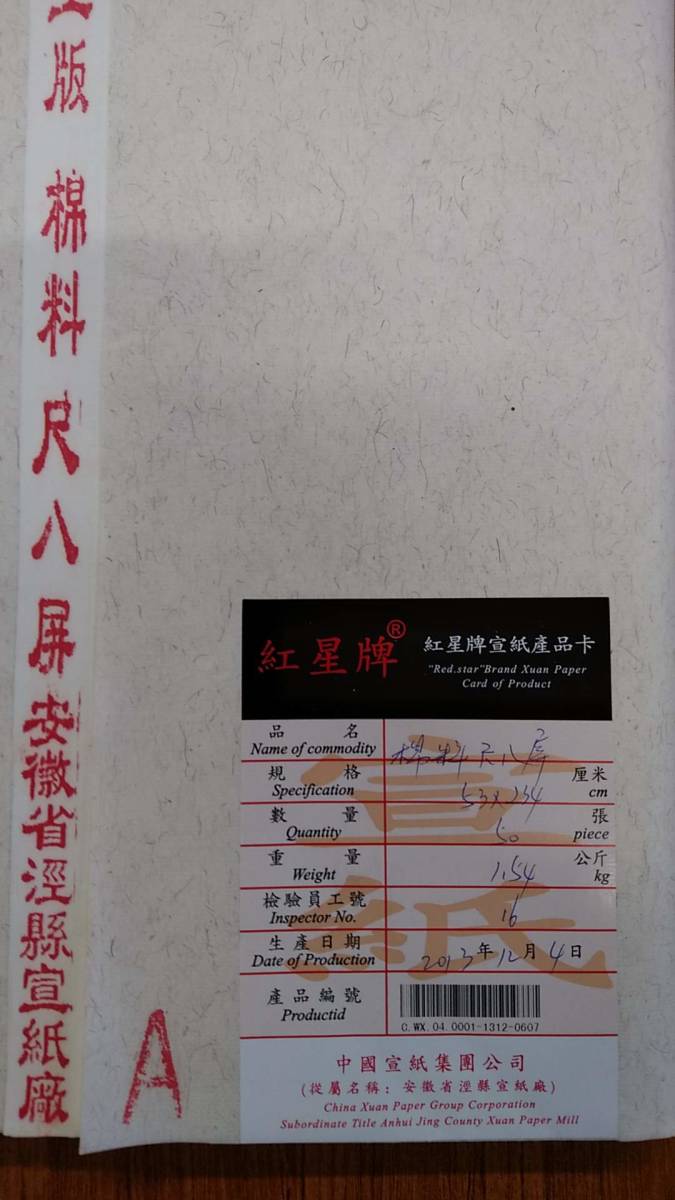 版 棉料尺八屏 安徽省涇縣宣紙廠
A
紅星牌®
紅星牌宣紙產品卡
"Red.star"Brand Xuan Paper
Card of Product
品名 棉料尺八屏
Name of commodity
規格 53×234 厘米
Specification cm
數量 50 張
Quantity piece
重量 1.54 公斤
Weight kg
檢驗員工號 16
Inspector No.
生產日期 2013年12月4日
Date of Production
產品編號
Productid
C.WX.04.0001-1312-0607
宣紙
中國宣紙集團公司
(從屬名稱：安徽省涇縣宣紙廠)
China Xuan Paper Group Corporation
Subordinate Title Anhui Jing County Xuan Paper Mill